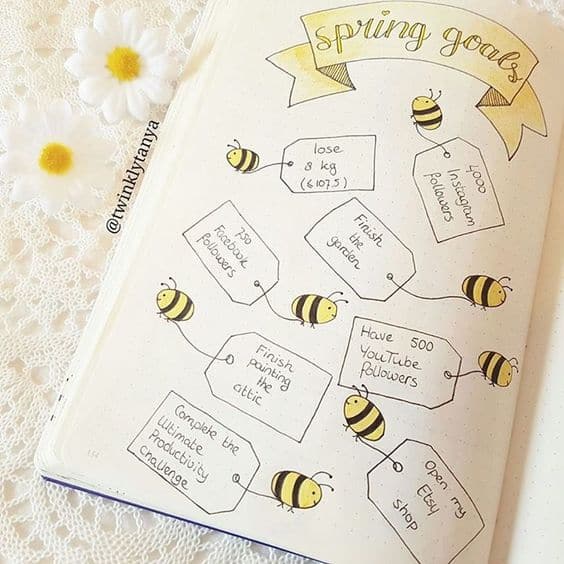 spring goals
lose
8 kg
(≤107.5)
4000
Instagram
followers
750
Facebook
followers
Finish
the
garden
Finish
painting
the
attic
Have 500
YouTube
followers
Complete the
Ultimate
Productivity
challenge
Open my
Etsy
shop
@twinklytanya